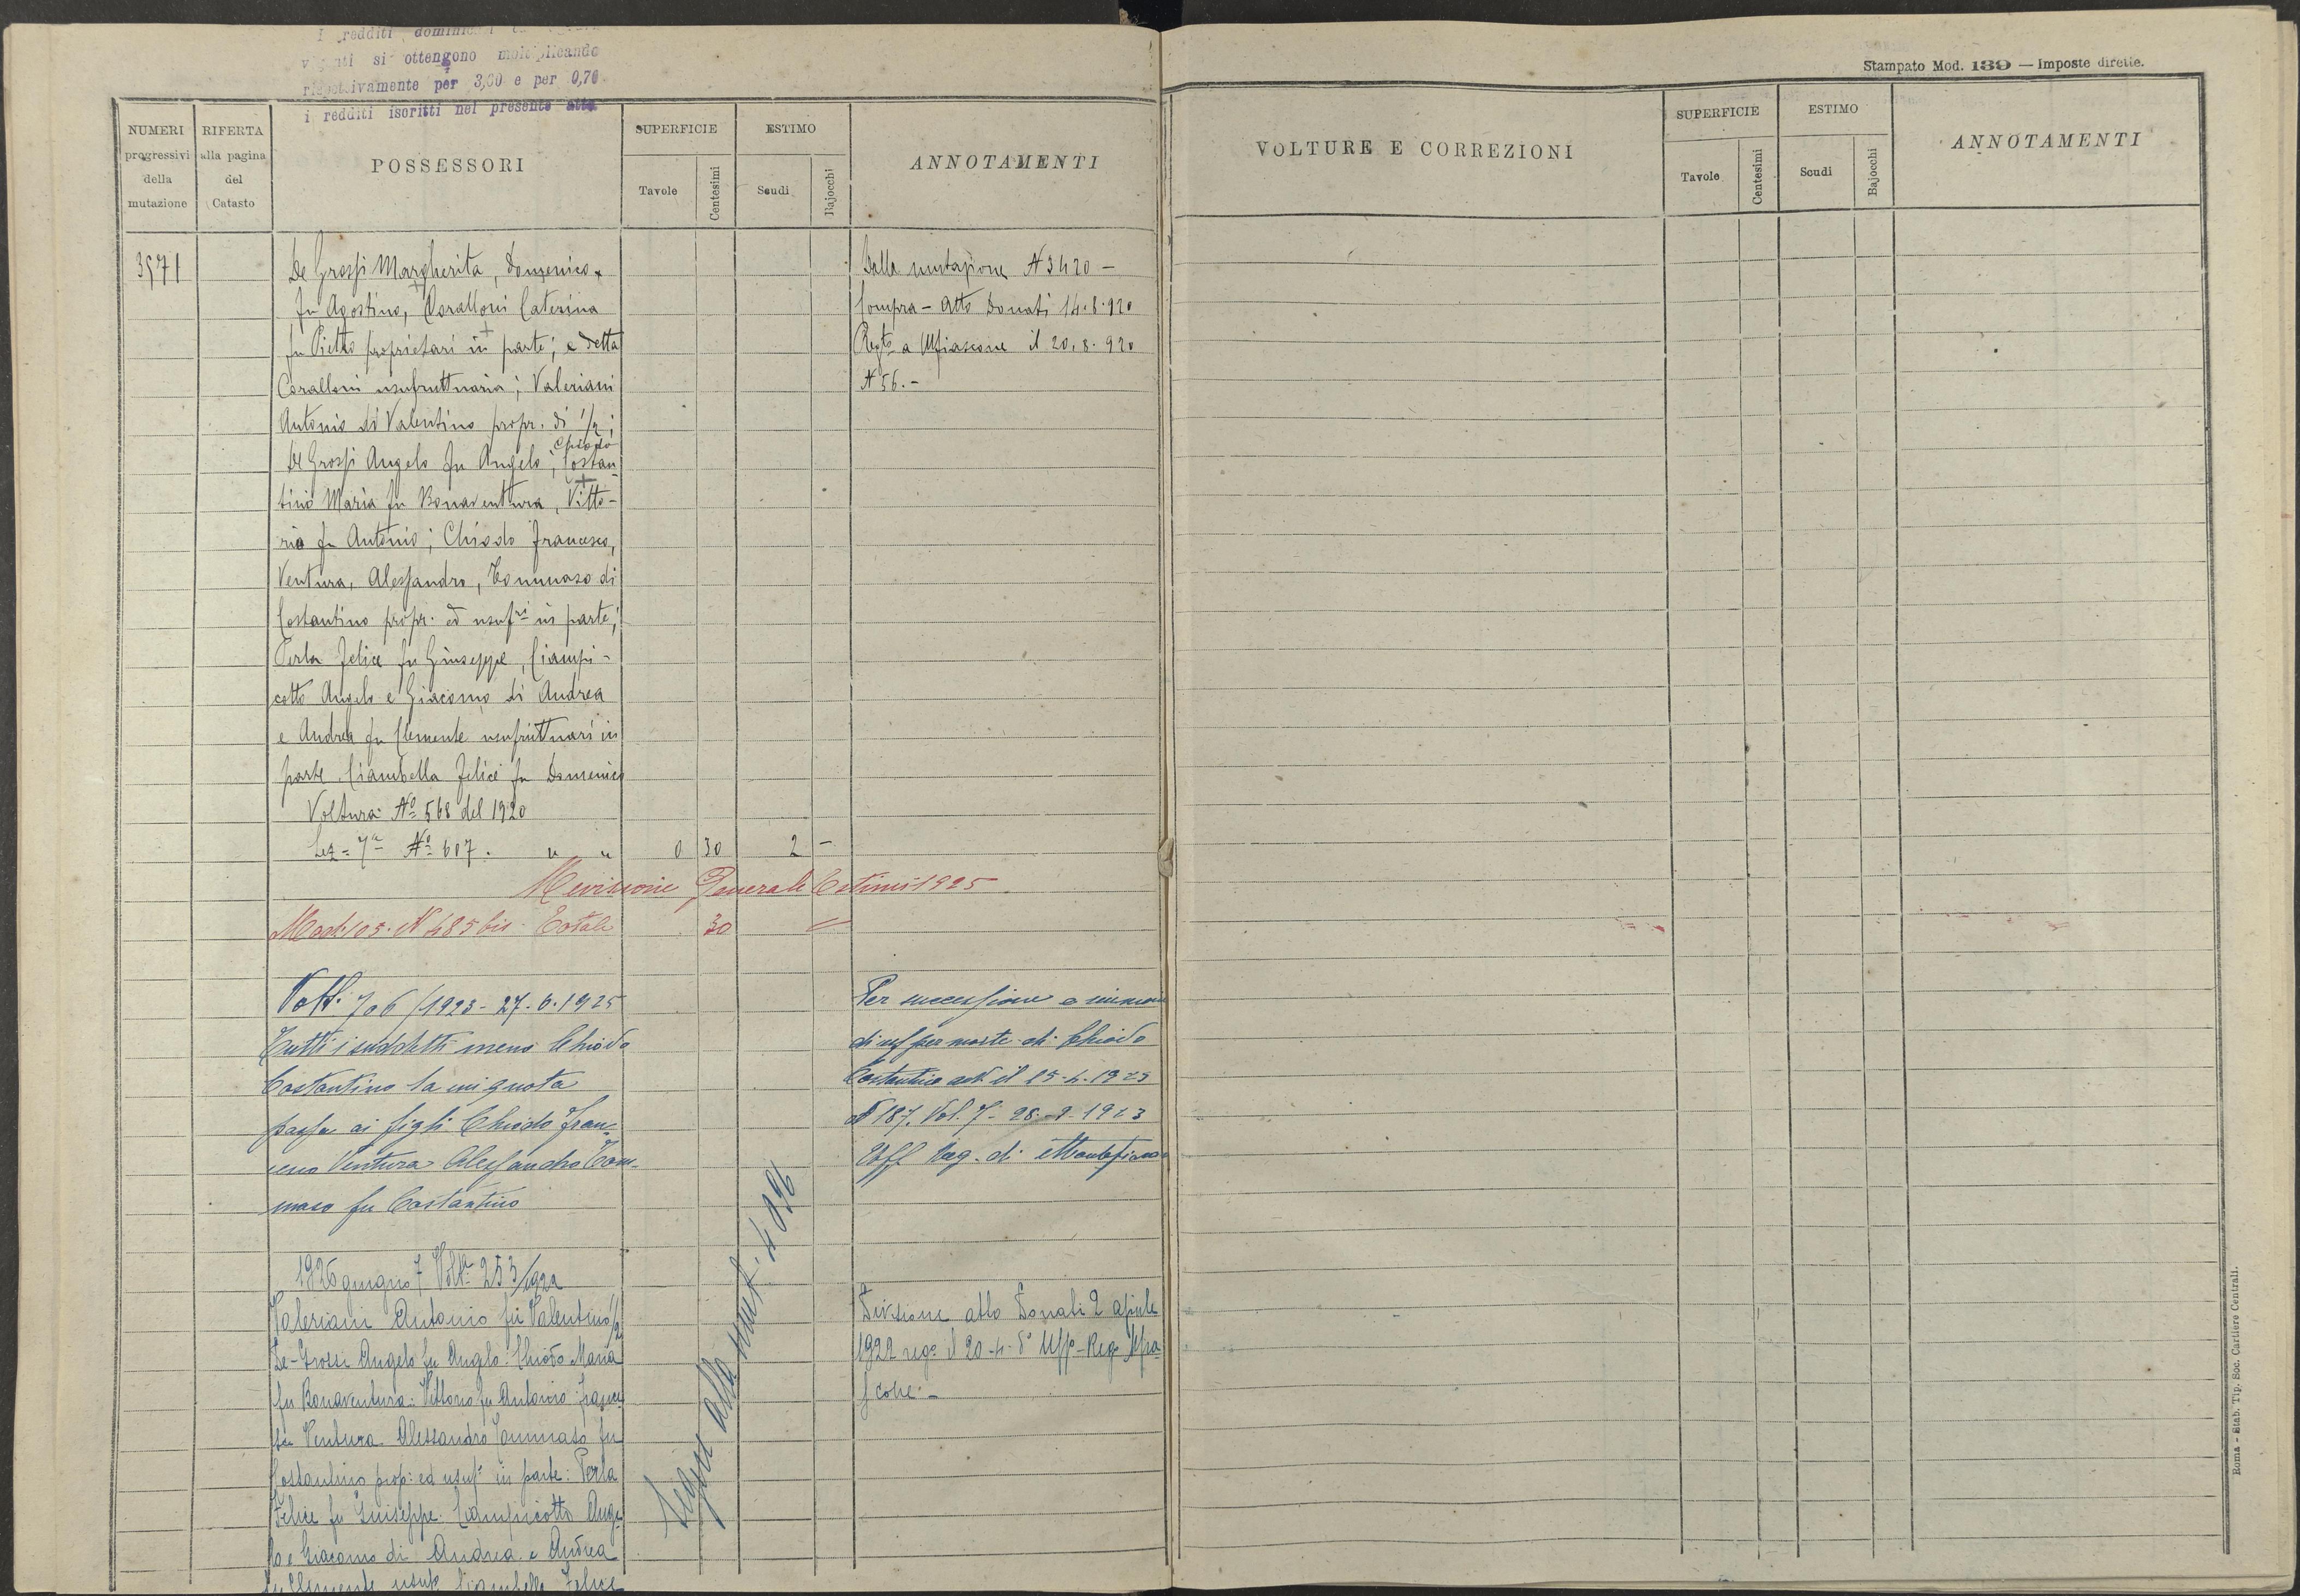 I redditi dominicali
si ottengono moltiplicando
rispettivamente per 3,00 e per 0,70
i redditi iscritti nel presente atto
Stampato Mod. 139 — Imposte dirette.
NUMERI progressivi della mutazione
RIFERTA alla pagina del Catasto
POSSESSORI
SUPERFICIE
Tavole
Centesimi
ESTIMO
Scudi
Bajocchi
ANNOTAMENTI
VOLTURE E CORREZIONI
SUPERFICIE
Tavole
Centesimi
ESTIMO
Scudi
Bajocchi
ANNOTAMENTI
3571
De Grossi Margherita, Domenico
fu Agostino, Coralloni Caterina
fu Pietro proprietari in parte; e detta
Coralloni usufruttuaria; Valeriani
Antonio di Valentino propr. di 1/2;
De Grossi Angelo fu Angelo; Chiodo Costan-
tino Maria fu Bonaventura, Vitto-
rio fu Antonio; Chiodo Francesco,
Ventura, Alessandro, Tommaso di
Costantino propr. ed usufri in parte;
Perla Felice fu Giuseppe, Ciampi-
cotto Angelo e Giacomo di Andrea
e Andrea fu Clemente usufruttuari in
parte, Ciambella Felice fu Domenico
Voltura No 568 del 1920
Sez = 7a No 607. " " 0 30 2 -
Dalla mutazione N 3420 -
Compra - Atto Donati 14.8.920
Regto a Mfiascone il 20.8.920
N 56.-
Revisione Generale Estimi 1925
Mod. 105. N 485 bis Totale 30
Volt. 706/1923 - 27.6.1925
Tutti i suddetti meno Chiodo
Costantino la cui quota
passa ai figli Chiodo Fran-
cesco Ventura Alessandro Tom-
maso fu Costantino
Per successione e riunione
di usf per morte di Chiodo
Costantino
N 187. Vol. 7 - 28-9-1923
Uff Reg. di Montefiascone
1926 giugno 7 Volt. 253/922
Valeriani Antonio fu Valentino 1/2
De-Grossi Angelo fu Angelo: Chiodo Maria
fu Bonaventura: Vittorio fu Antonio: France
Ventura Alessandro Tommaso fu
Costantino prop: ed usuf. in parte: Perla
Felice fu Giuseppe. Ciampicotto Ange
lo e Giacomo di Andrea e Andrea
fu Clemente usuf. Ciambella Felice
Divisione atto Donati 2 aprile
1922 rego il 20-4-do Uff-Rego Mfia
scone.-
Segue alla mut.
Roma - Stab. Tip. Soc. Cartiere Centrali.